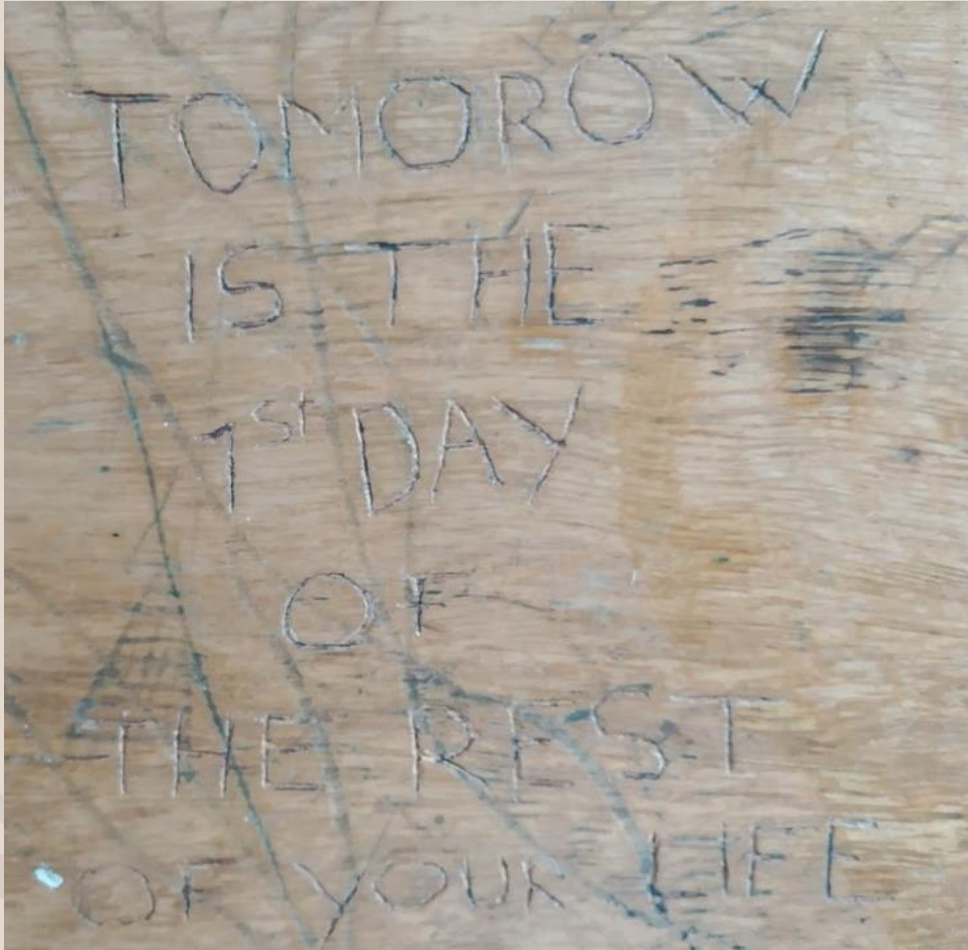 TOMOROW
IS THE
1st DAY
OF
THE REST
OF YOUR LIFE